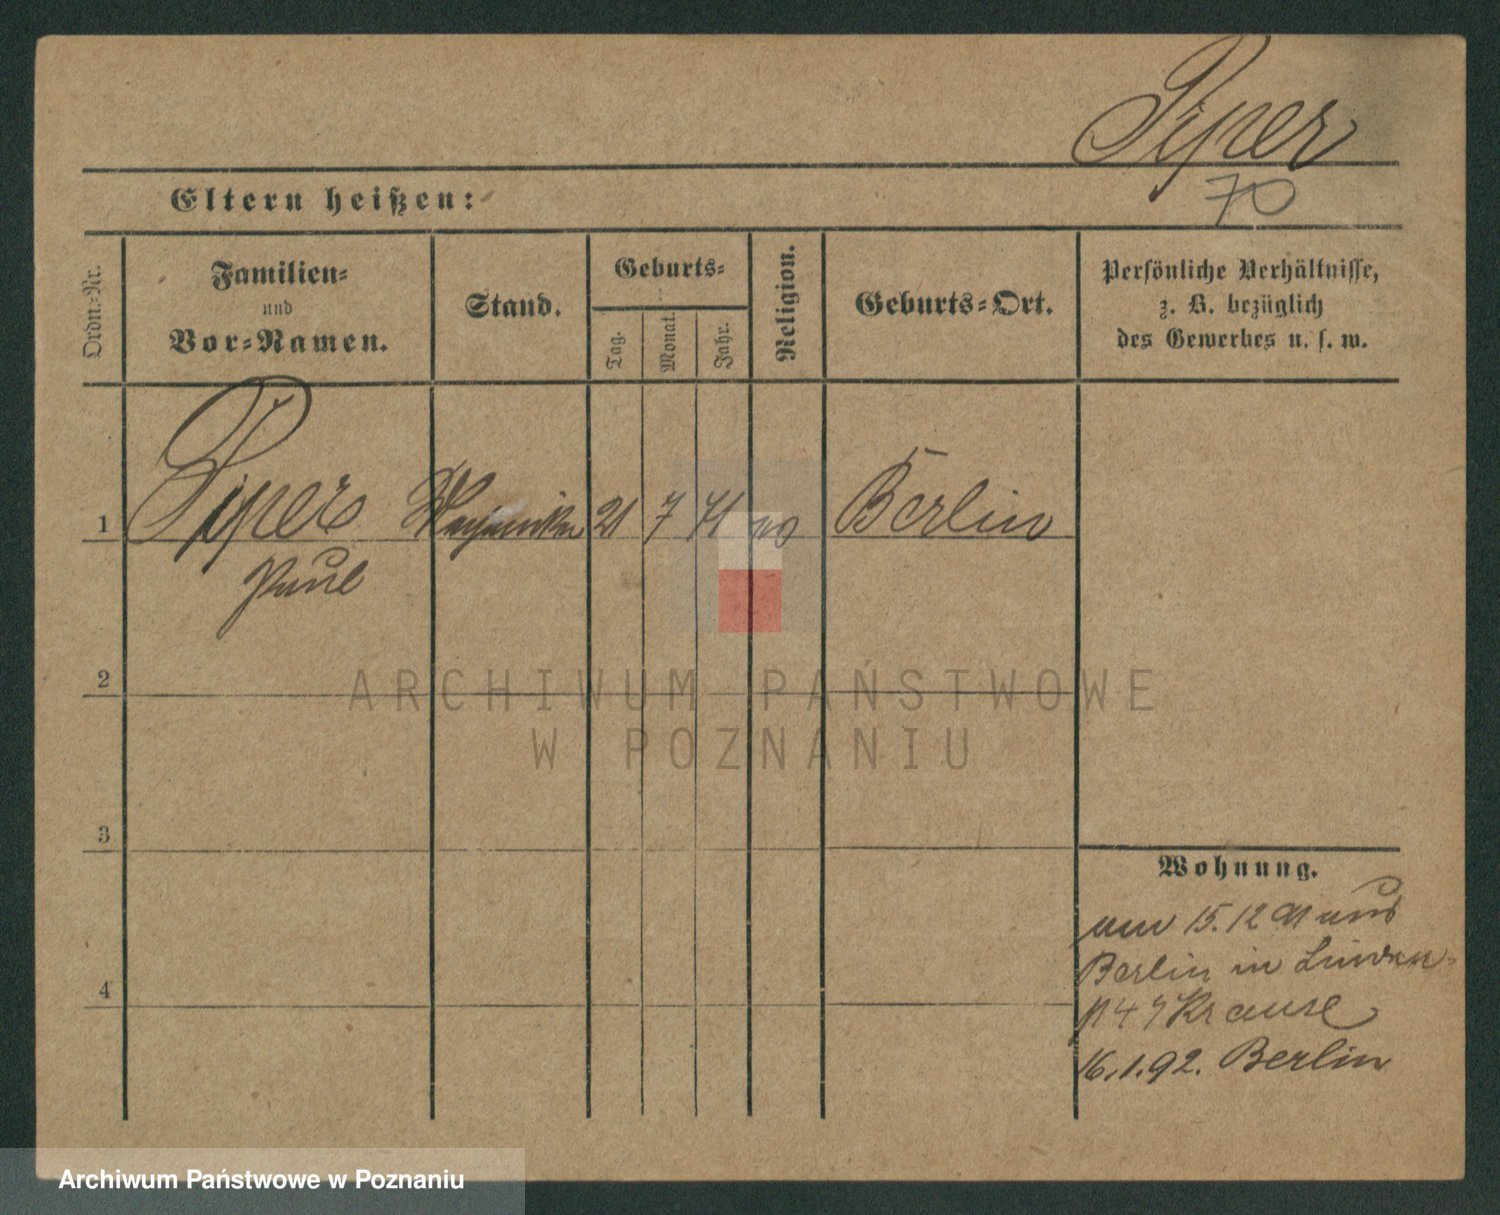 Piper
70
Eltern heißen:
Ordn.-Nr.
Familien-
und
Vor-Namen.
Stand.
Geburts-
Tag.
Monat.
Jahr.
Religion.
Geburts-Ort.
Persönliche Verhältnisse,
z. B. bezüglich
des Gewerbes u. s. w.
1 Piper Mechaniker 21 7 71 Berlin
Paul
2
3
4
Wohnung.
am 15.12 91 aus
Berlin in Linden-
47 Krause
16.1.92. Berlin
ARCHIWUM PAŃSTWOWE
W POZNANIU
Archiwum Państwowe w Poznaniu